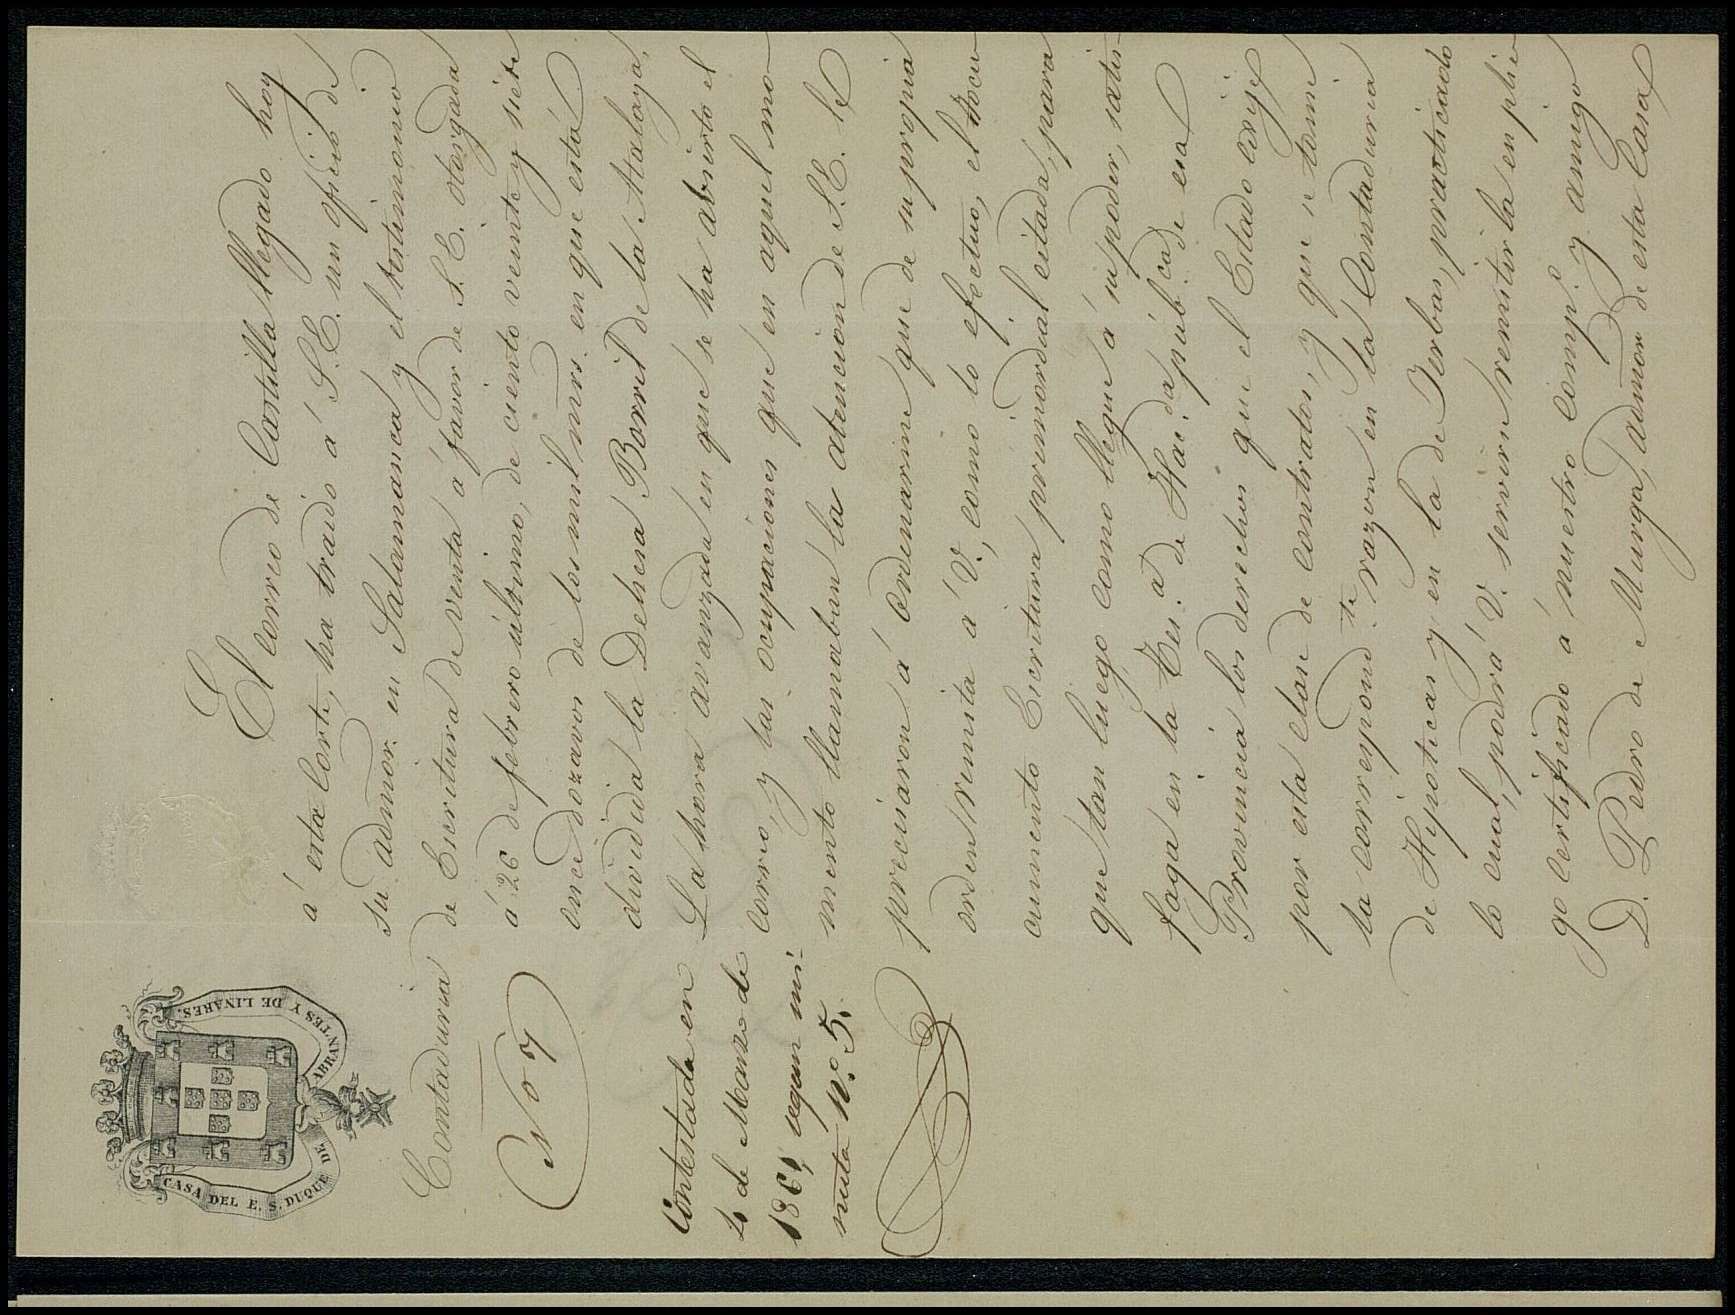 CASA DEL E. S. DUQUE DE ABRANTES Y DE LINARES.
Contaduria
N.º 7
Contestada en
2 de Marzo de
1861, segun mi-
nuta n.º 5.
El correo de Castilla llegado hoy
á esta Corte, ha traido á S.E. un oficio de
su admor. en Salamanca y el testimonio
de Escritura de venta á favor de S.E. otorgada
á 26 de febrero último, de ciento veinte y siete
once dozavos de los mil mrs. en que está
dividida la Dehesa Borril de la Atalaya,
La hora avanzada en que se ha abierto el
correo, y las ocupaciones que en aquel mo-
mento llamaban la atencion de S.E. le
precisaron á ordenarme que de su propia
orden remita á V., como lo efectuo, el docu
cumento Escritura primordial citada, para
que tan luego como llegue á su poder, satis-
faga en la Tes.a de Hac.da púb.ca de esa
Provincia los derechos que el Estado exije
por esta clase de contratos, y que se tome
la correspond.te razon en la Contaduria
de Hipotecas y en la de Yerbas, practicado
lo cual, podrá V. servirse remitirla en plie
go certificado á nuestro comp.o y amigo
D. Pedro de Murga, admor de esta Casa